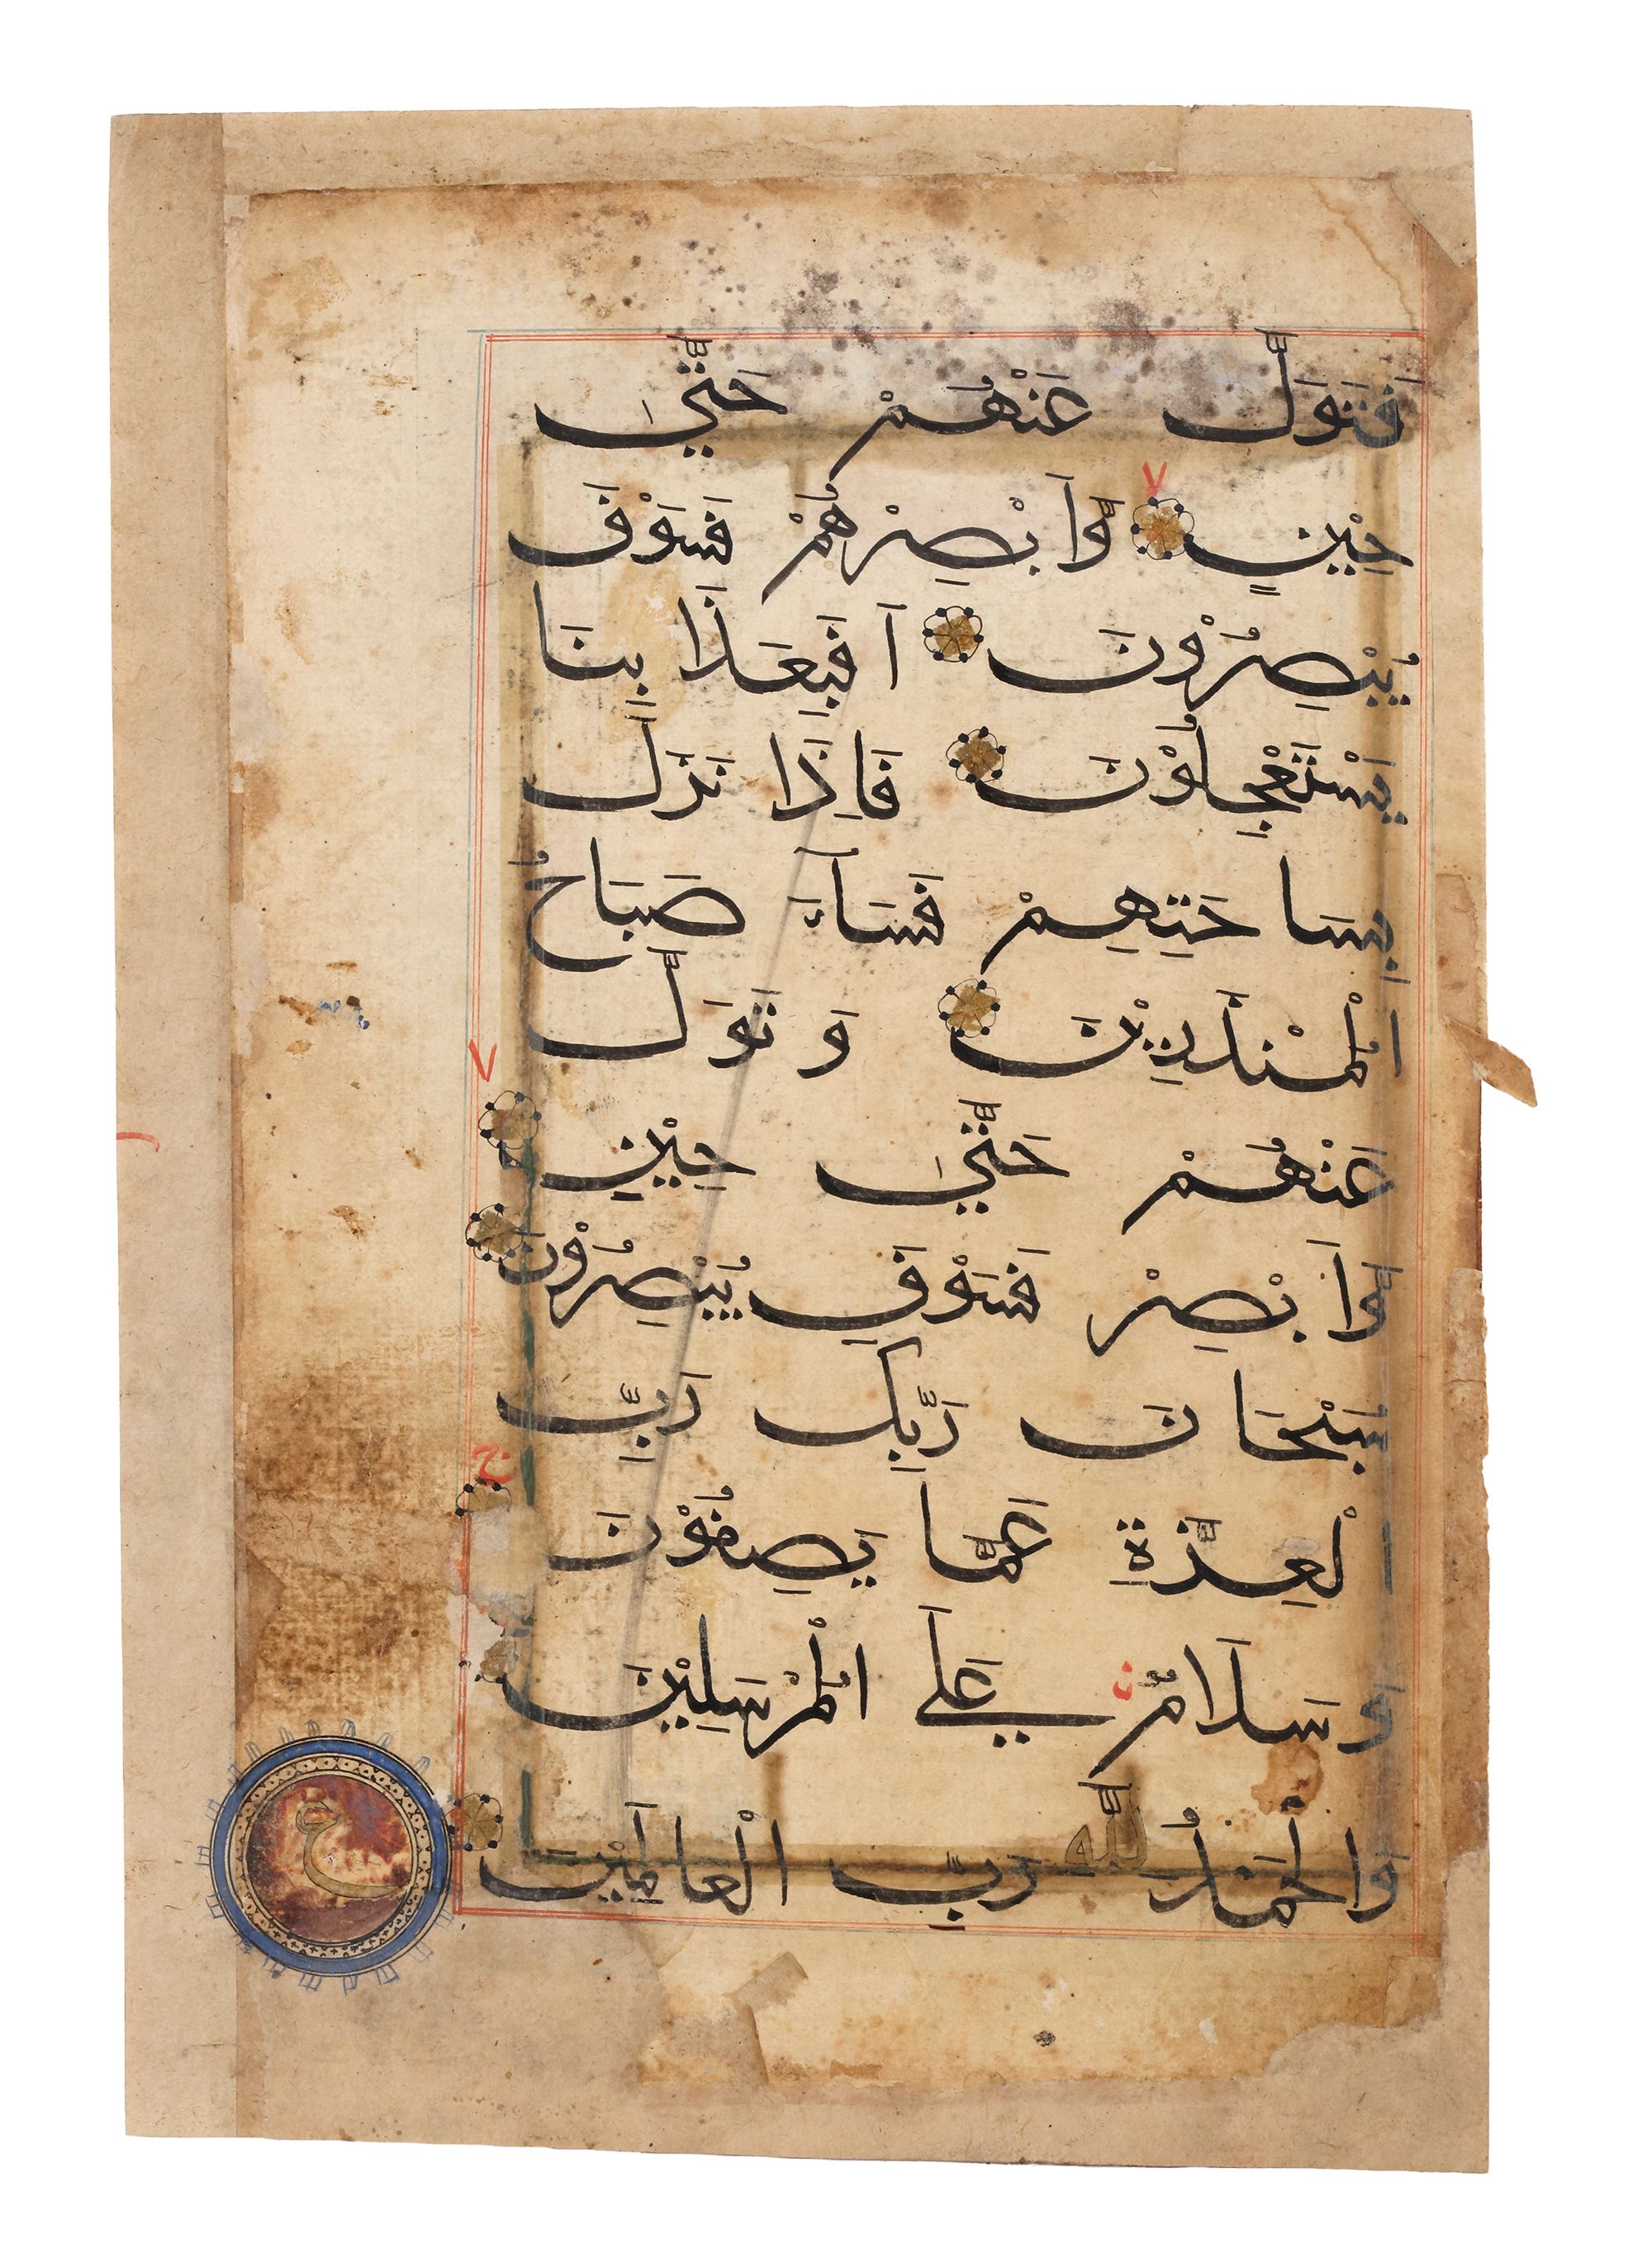 فَتَوَلَّ عَنْهُمْ حَتَّىٰ
حِيْنٍ ٧ وَّاَبْصِرْهُمْ فَسَوْفَ
يُبْصِرُوْنَ اَفَبِعَذَا بِنَا
يَسْتَعْجِلُوْنَ فَاِذَا نَزَلَ
بِسَا حَتِهِمْ فَسَآءَ صَبَاحُ
الْمُنْذَرِيْنَ وَ تَوَلَّ
عَنْهُمْ حَتَّىٰ حِيْنٍ ٧
وَّاَبْصِرْ فَسَوْفَ يُبْصِرُوْنَ
سُبْحَانَ رَبِّكَ رَبِّ
الْعِزَّةِ عَمَّا يَصِفُوْنَ ج
وَسَلَامٌ عَلَى الْمُرْسَلِيْنَ
وَالْحَمْدُ لِلّٰهِ رَبِّ الْعَالَمِيْنَ
ع